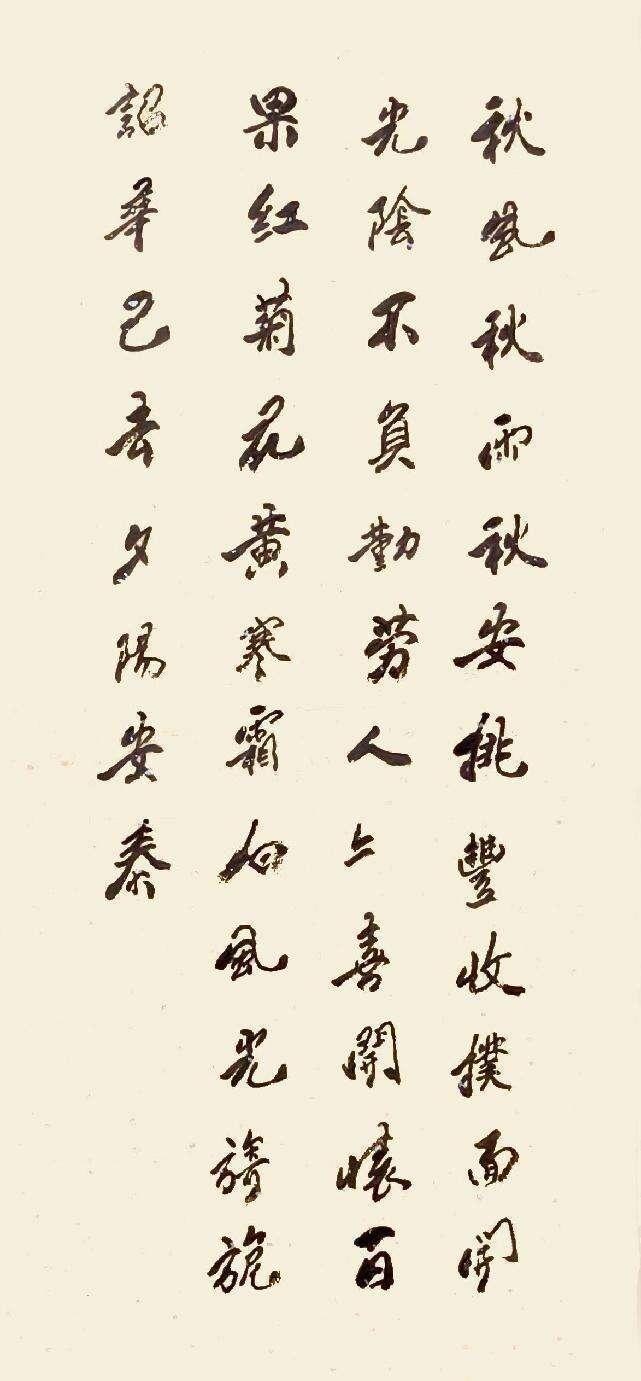 秋風秋雨秋安排豐收撲面開
光陰不負勤勞人人喜開懷百
果紅菊花黃寒霜向風光旖旎
韶華已去夕陽安泰